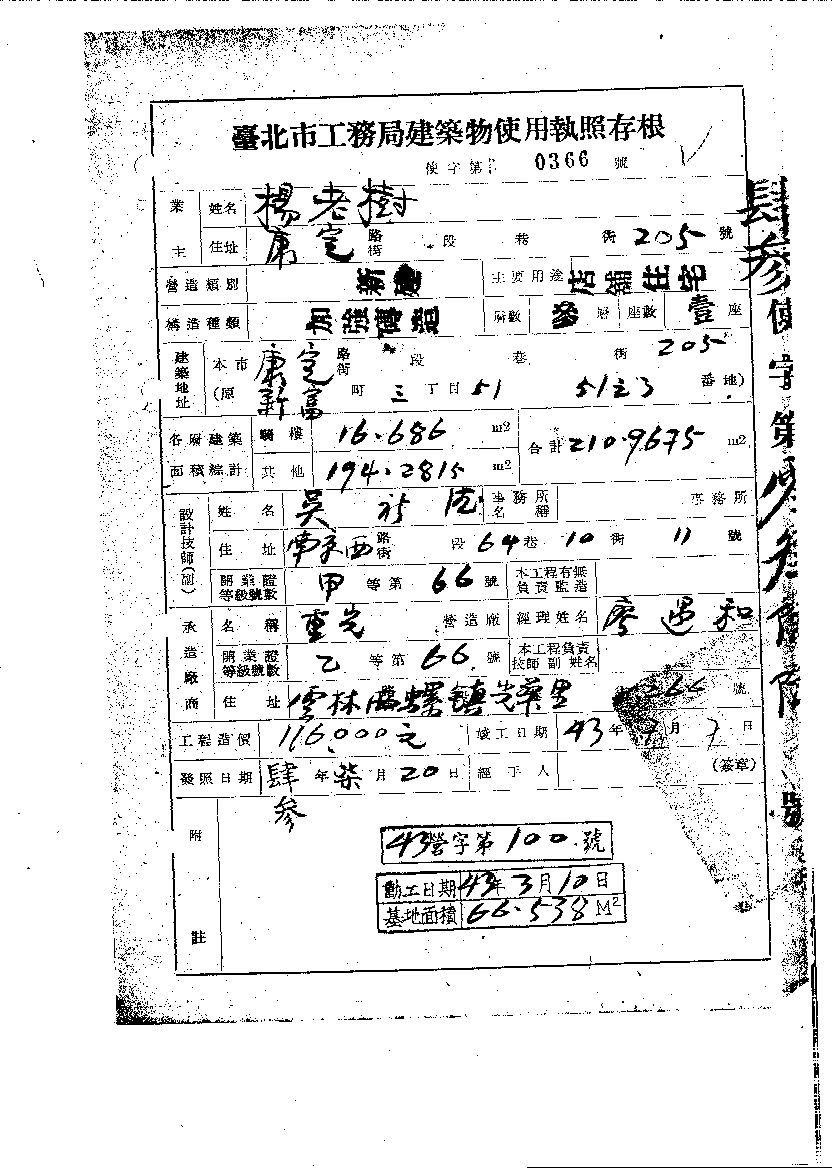 臺北市工務局建築物使用執照存根
使字第 0366 號
業主 姓名 楊老樹
住址 康定 路街 段 巷 街 205 號
營造類別 新建 主要用途 店舖住宅
構造種類 加強磚造 層數 參 層 座數 壹 座
建築地址 本市 康定 路街 段 巷 街 205
(原 新富 町 三 丁目 51 51之3 番地)
各層建築面積綜計 騎樓 16.686 m2 合計 210.9675 m2
其他 194.2815 m2
設計技師(副) 姓名 吳 事務所名稱 事務所
住址 南京西 路街 段 64 巷 10 街 11 號
開業證等級號數 甲 等第 66 號 本工程有無負責監造
承造廠商 名稱 重光 營造廠 經理姓名 廖遇和
開業證等級號數 乙 等第 66 號 本工程負責技師 副 姓名
住址 雲林 螺鎮光華里 266 號
工程造價 116,000元 竣工日期 43 年 7 月 7 日
發照日期 肆參 年 柒 月 20 日 經手人 (簽章)
附註
43營字第100號
動工日期 43年3月10日
基地面積 66.538 M2
肆參使字第 號